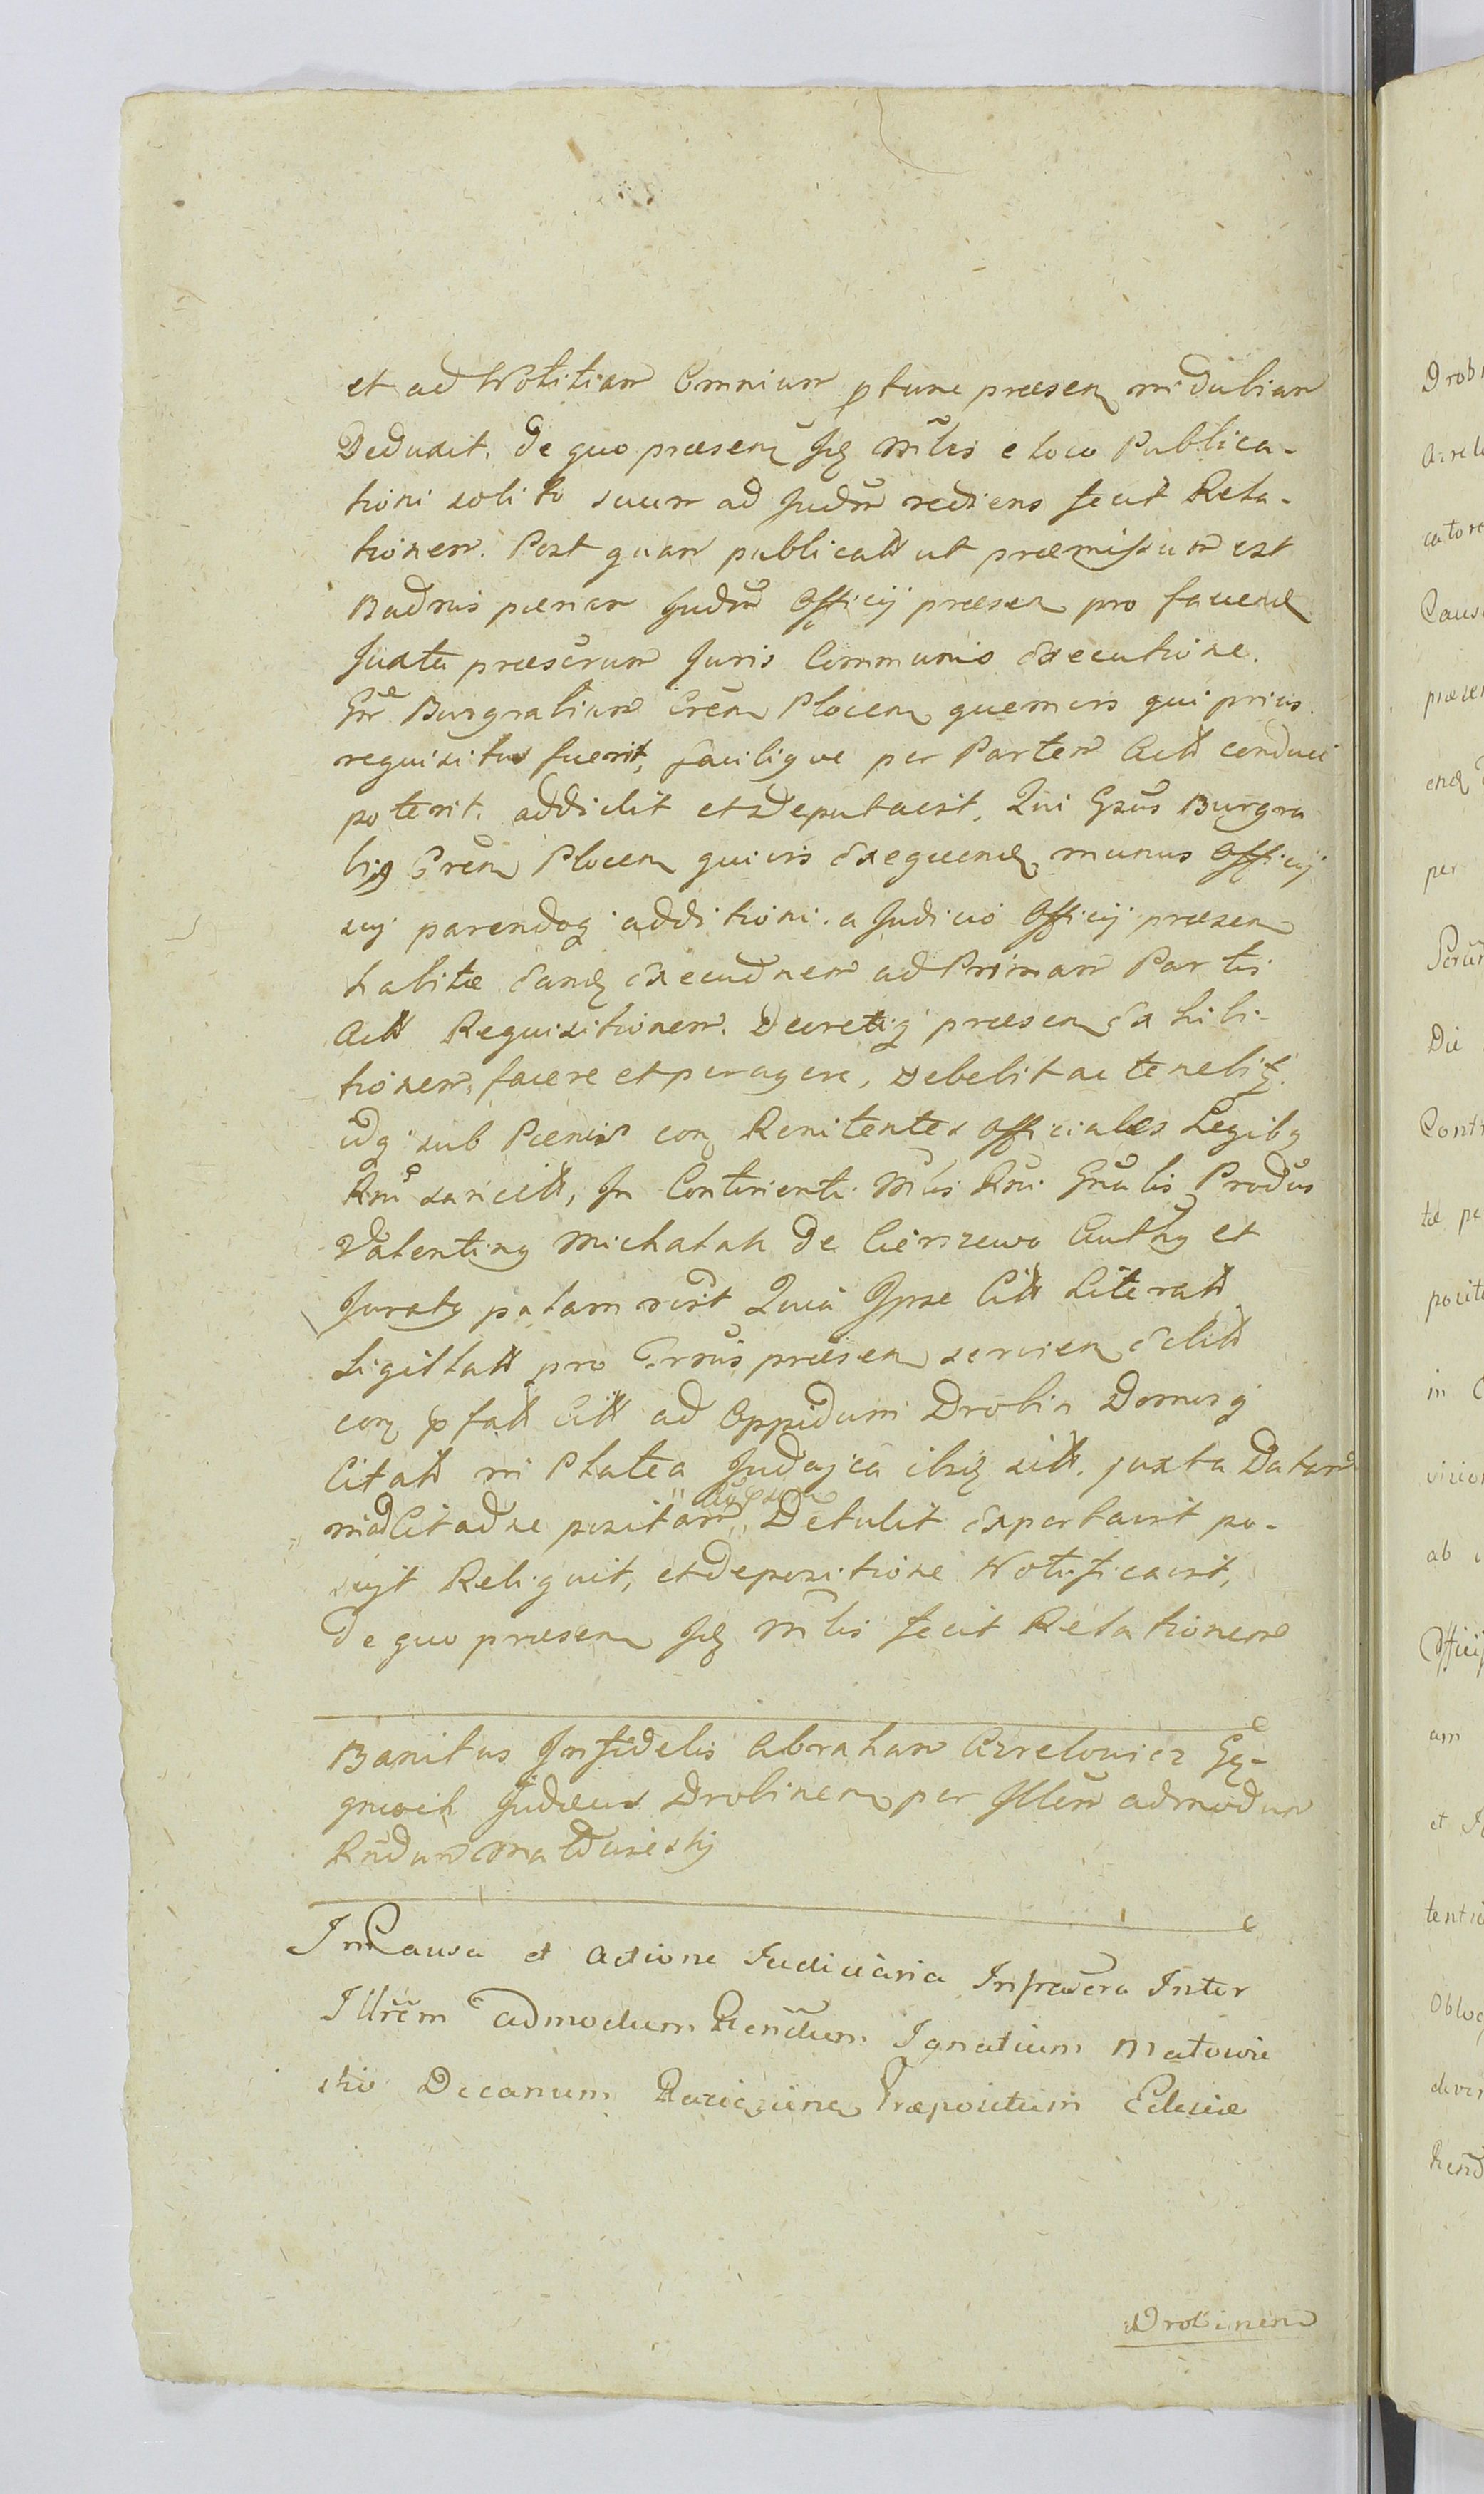 et ad Notitiam Omnium ptunc præsen indubiam
Deduxit. De quo præsen Jdq Mtlis e loco Publica-
tioni solito suum ad Judm rediens fecit Rela-
tionem. Post quam publicatt ut præmissum est
Badnis pænam Judm Officij præsen pro faciend
Juxta præscrum Juris Communis Executione.
Gnr Burgrabium Cren Plocen quemvis qui prius
requisitus fuerit, facilique per Partem Actt conduci
poterit. addidit et Deputavit, Qui Gnsus Burgra
big Cren Plocen quivis exequend munus Officij
sui parendoq additioni a Judicio Officij præsen
habitæ eand execudnem ad Primam Partis
Actt Requisitionem. Decretiq præsen Exhibi-
tionem, facere et peragere, debebit ac tenebitz.
idq sub Pænis con Renitentes Officiales Legibq
Rni sancitt, In Continenti Mtlis Rni Gnalis Produs
Valentinq Michalak de Cierszewo Authq et
Juratq palam rert Quia Ipse Citt Literatt
Sigillatt pro Trmis præsen servien editt
con pfatt Citt ad Oppidum Drobin Domusq
Citatt in Platea Judajca ibiq sitt. juxta Datam
in Citadne positam Detulit Exportavit po-
suit Reliquit, et depositione Notificavit,
De quo præsen Jdq Mtlis fecit Relationem
Banitus Infidelis Abraham Azrelowicz Gę-
gnwich Judæus Drobinen per Illrm admodum
Rndum Matowieskij
In Causa et Actione Judiciaria Infrascra Inter
Illrem admodum Rendum Ignatium Matowie
ski Decanum Raciązinen Præpositum Eclesiæ
Drobinen